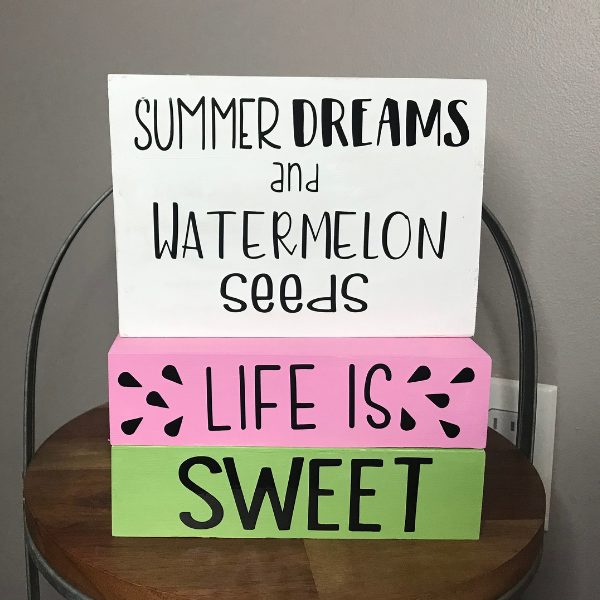 SUMMER DREAMS
and
WATERMELON
seeds
LIFE IS
SWEET